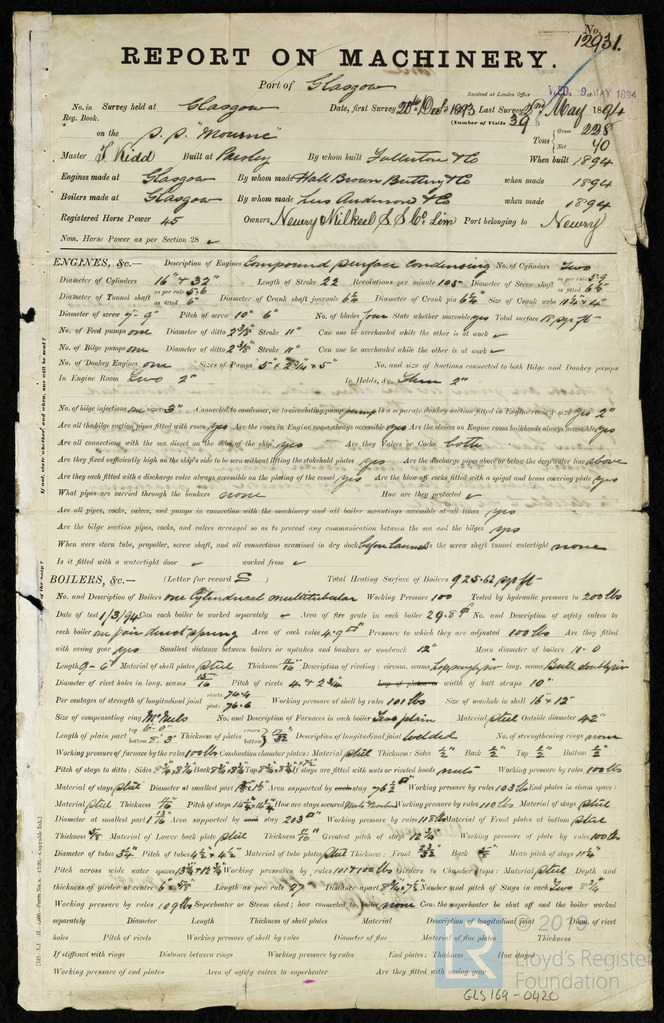 No. 12931.
REPORT ON MACHINERY.
Port of Glasgow
Received at London Office 9 MAY 1894
No. in Survey held at Glasgow Date, first Survey 20th Dec 1893 Last Survey 2nd May 1894
Reg. Book. (Number of Visits 39
on the S.S. "Mourne" Tons Gross 228 Net 90
Master J. Kidd Built at Paisley By whom built Fullerton & Co When built 1894
Engines made at Glasgow By whom made Hall Brown Buttery & Co when made 1894
Boilers made at Glasgow By whom made Lees Anderson & Co when made 1894
Registered Horse Power 45 Owners Newry & Kilkeel S.S. Co. Lim Port belonging to Newry
Nom. Horse Power as per Section 28
ENGINES, &c.— Description of Engines Compound Surface Condensing No. of Cylinders Two
Diameter of Cylinders 16" & 32" Length of Stroke 22 Revolutions per minute 105 Diameter of Screw shaft as per rule 5.9 as fitted 6½"
Diameter of Tunnel shaft as per rule 5.6 as fitted 6" Diameter of Crank shaft journals 6½ Diameter of Crank pin 6½" Size of Crank webs 11¾" × 4"
Diameter of screw 7'- 9" Pitch of screw 10' 6" No. of blades four State whether moveable yes Total surface 18 sq ft
No. of Feed pumps one Diameter of ditto 2⅜" Stroke 11" Can one be overhauled while the other is at work
No. of Bilge pumps one Diameter of ditto 2⅜" Stroke 11" Can one be overhauled while the other is at work
No. of Donkey Engines one Sizes of Pumps 5" × 2¾" × 5" No. and size of Suctions connected to both Bilge and Donkey pumps
In Engine Room Two 2" In Holds, &c. Three 2"
No. of bilge injections one 3" Connected to condenser, or to circulating pump pump Is a separate donkey suction fitted in Engine room & size yes 2"
Are all the bilge suction pipes fitted with roses yes Are the roses in Engine room always accessible yes Are the sluices on Engine room bulkheads always accessible yes
Are all connections with the sea direct on the skin of the ship yes Are they Valves or Cocks both
Are they fixed sufficiently high on the ship's side to be seen without lifting the stokehold plates yes Are the discharge pipes above or below the deep water line above
Are they each fitted with a discharge valve always accessible on the plating of the vessel yes Are the blow-off cocks fitted with a spigot and brass covering plate yes
What pipes are carried through the bunkers none How are they protected
Are all pipes, cocks, valves, and pumps in connection with the machinery and all boiler mountings accessible at all times yes
Are the bilge suction pipes, cocks, and valves arranged so as to prevent any communication between the sea and the bilges yes
When were stern tube, propeller, screw shaft, and all connections examined in dry dock before launch Is the screw shaft tunnel watertight none
Is it fitted with a watertight door worked from
BOILERS, &c.— (Letter for record S) Total Heating Surface of Boilers 925.62 sq ft
No. and Description of Boilers one Cylindrical multitubular Working Pressure 100 Tested by hydraulic pressure to 200 lbs
Date of test 1/3/94 Can each boiler be worked separately Area of fire grate in each boiler 29.8 No. and Description of safety valves to
each boiler one pair direct spring Area of each valve 4.9 Pressure to which they are adjusted 100 lbs Are they fitted
with easing gear yes Smallest distance between boilers or uptakes and bunkers or woodwork 12" Mean diameter of boilers 11'- 0
Length 9'- 6" Material of shell plates steel Thickness 11/16 Description of riveting: circum. seams Lap long. seams Butt double riv
Diameter of rivet holes in long. seams 13/16 Pitch of rivets 4 & 2¾ width of butt straps 10"
Per centages of strength of longitudinal joint rivets 74.4 plate 76.6 Working pressure of shell by rules 101 lbs Size of manhole in shell 16" × 12"
Size of compensating ring McNeils No. and Description of Furnaces in each boiler Two plain Material steel Outside diameter 42"
Length of plain part top 6'-0" bottom 8'-3" Thickness of plates 17/32 Description of longitudinal joint welded No. of strengthening rings none
Working pressure of furnace by the rules 100 lbs Combustion chamber plates: Material steel Thickness: Sides ½" Back ½" Top ½" Bottom ½"
Pitch of stays to ditto: Sides Back Top If stays are fitted with nuts or riveted heads nuts Working pressure by rules 100 lbs
Material of stays steel Diameter at smallest part Area supported by each stay 76½ Working pressure by rules 103 lbs End plates in steam space:
Material steel Thickness 11/16 Pitch of stays How are stays secured Working pressure by rules 110 lbs Material of stays steel
Diameter at smallest part Area supported by each stay 203 Working pressure by rules 118 lbs Material of Front plates at bottom steel
Thickness ⅝ Material of Lower back plate steel Thickness 11/16 Greatest pitch of stays 12¾ Working pressure of plate by rules 100 lbs
Diameter of tubes 3¼" Pitch of tubes 4½ × 4½" Material of tube plates steel Thickness: Front 23/32 Back Mean pitch of stays 11¼
Pitch across wide water spaces Working pressures by rules 101 & 100 lbs Girders to Chamber tops: Material steel Depth and
thickness of girder at centre Length as per rule 27" Distance apart Number and pitch of Stays in each Two 8¾
Working pressure by rules 109 lbs Superheater or Steam chest; how connected to boiler none Can the superheater be shut off and the boiler worked
separately Diameter Length Thickness of shell plates Material Description of longitudinal joint Diam. of rivet
holes Pitch of rivets Working pressure of shell by rules Diameter of flue Material of flue plates Thickness
If stiffened with rings Distance between rings Working pressure by rules End plates: Thickness How stayed
Working pressure of end plates Area of safety valves to superheater Are they fitted with easing gear
© 2019
Lloyd's Register
Foundation
GLS169-0420